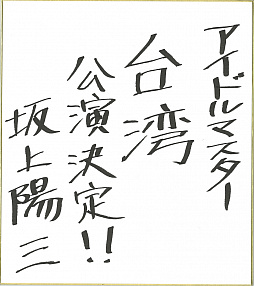 アイドルマスター
台湾
公演決定!!
坂上陽三